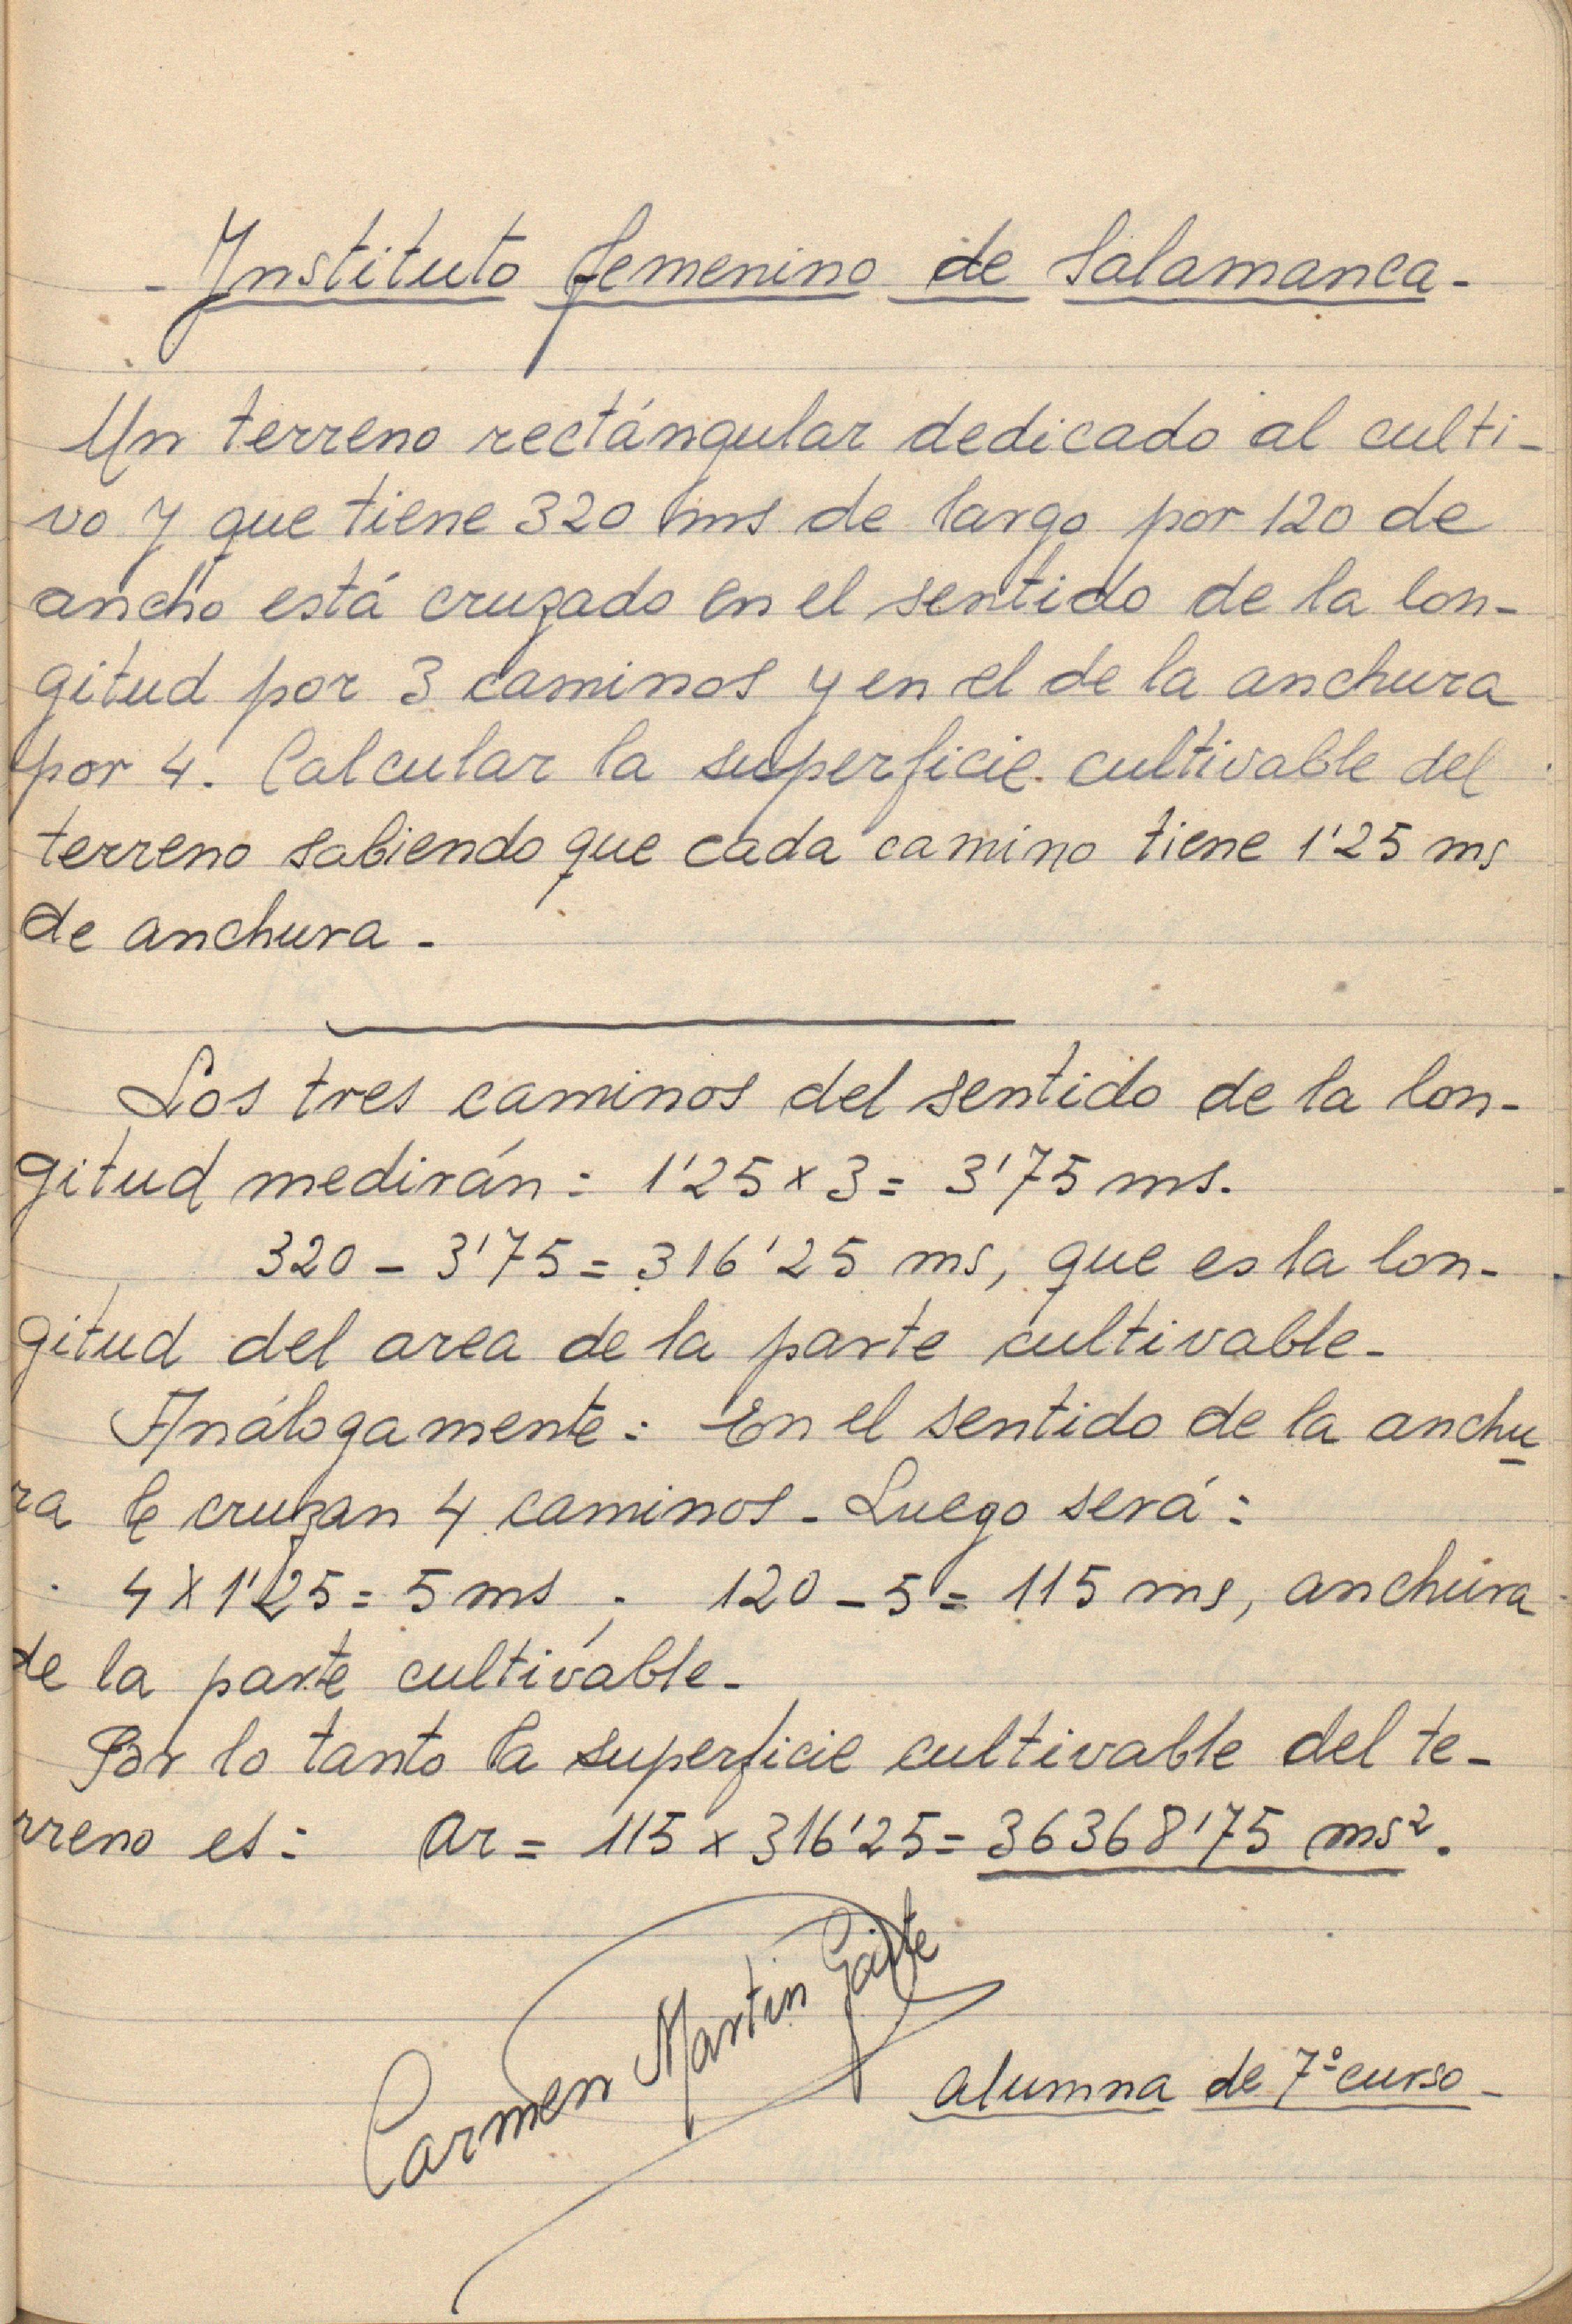 - Instituto femenino de Salamanca -
Un terreno rectángular dedicado al culti-
vo y que tiene 320 ms de largo por 120 de
ancho está cruzado en el sentido de la lon-
gitud por 3 caminos y en el de la anchura
por 4. Calcular la superficie cultivable del
terreno sabiendo que cada camino tiene 1'25 ms
de anchura -
Los tres caminos del sentido de la lon-
gitud medirán: 1'25 x 3 = 3'75 ms.
320 - 3'75 = 316'25 ms, que es la lon-
gitud del area de la parte cultivable -
Análogamente: En el sentido de la anchu
ra le cruzan 4 caminos - Luego será:
4 x 1'25 = 5 ms ; 120 - 5 = 115 ms, anchura
de la parte cultivable -
Por lo tanto la superficie cultivable del te-
rreno es: Ar = 115 x 316'25 = 36368'75 ms².
Carmen Martin Gaite
alumna de 7º curso -